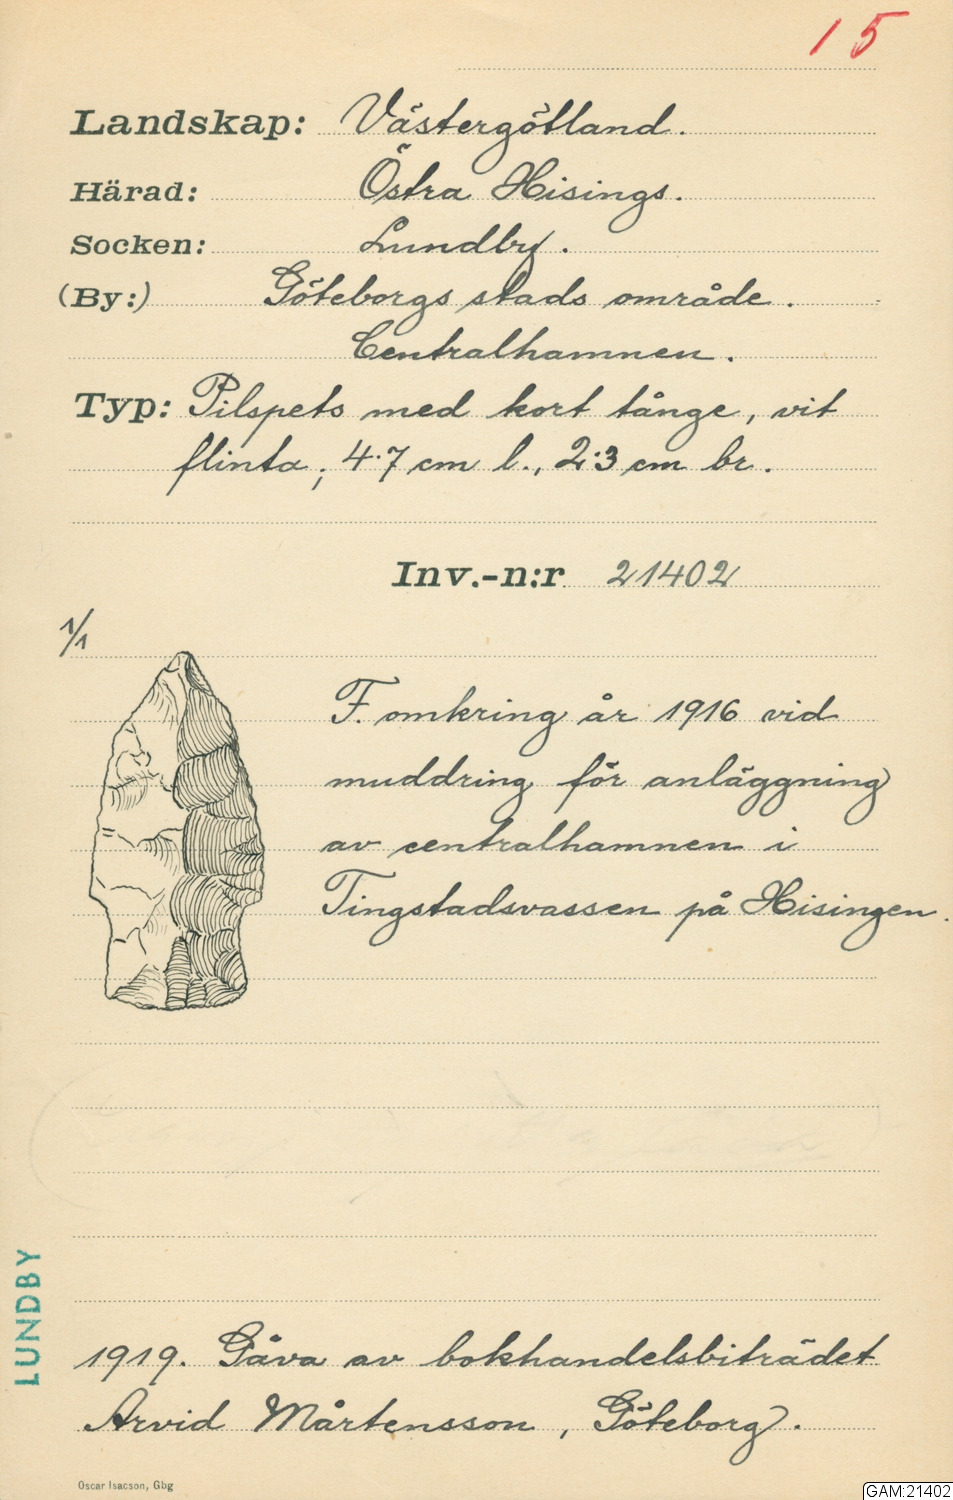 15
Landskap: Västergötland.
Härad: Östra Hisings.
Socken: Lundby.
(By:) Göteborgs stads område.
Centralhamnen.
Typ: Pilspets med kort tånge, vit
flinta; 4.7 cm l., 2.3 cm br.
Inv.-n:r 21402
1/1
F. omkring år 1916 vid
muddring för anläggning
av centralhamnen i
Tingstadsvassen på Hisingen.
LUNDBY
1919. Gåva av bokhandelsbiträdet
Arvid Mårtensson, Göteborg.
Oscar Isacson, Gbg
GAM:21402